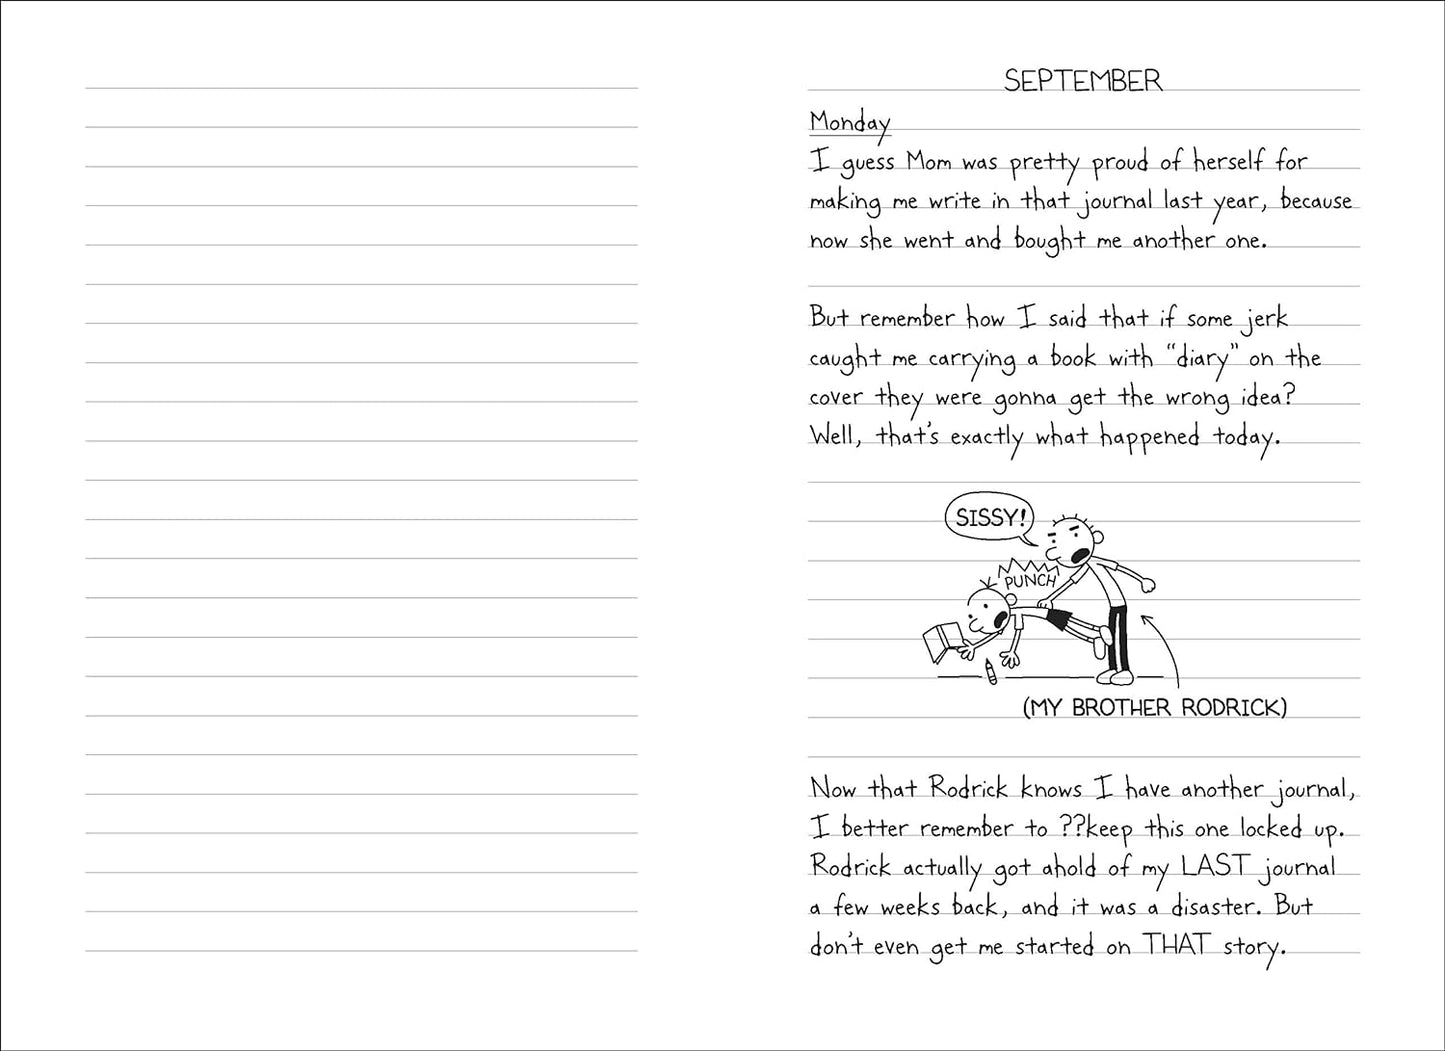 SEPTEMBER
Monday
I guess Mom was pretty proud of herself for
making me write in that journal last year, because
now she went and bought me another one.
But remember how I said that if some jerk
caught me carrying a book with “diary” on the
cover they were gonna get the wrong idea?
Well, that's exactly what happened today.
SISSY!
PUNCH
(MY BROTHER RODRICK)
Now that Rodrick knows I have another journal,
I better remember to ??keep this one locked up.
Rodrick actually got ahold of my LAST journal
a few weeks back, and it was a disaster. But
don't even get me started on THAT story.